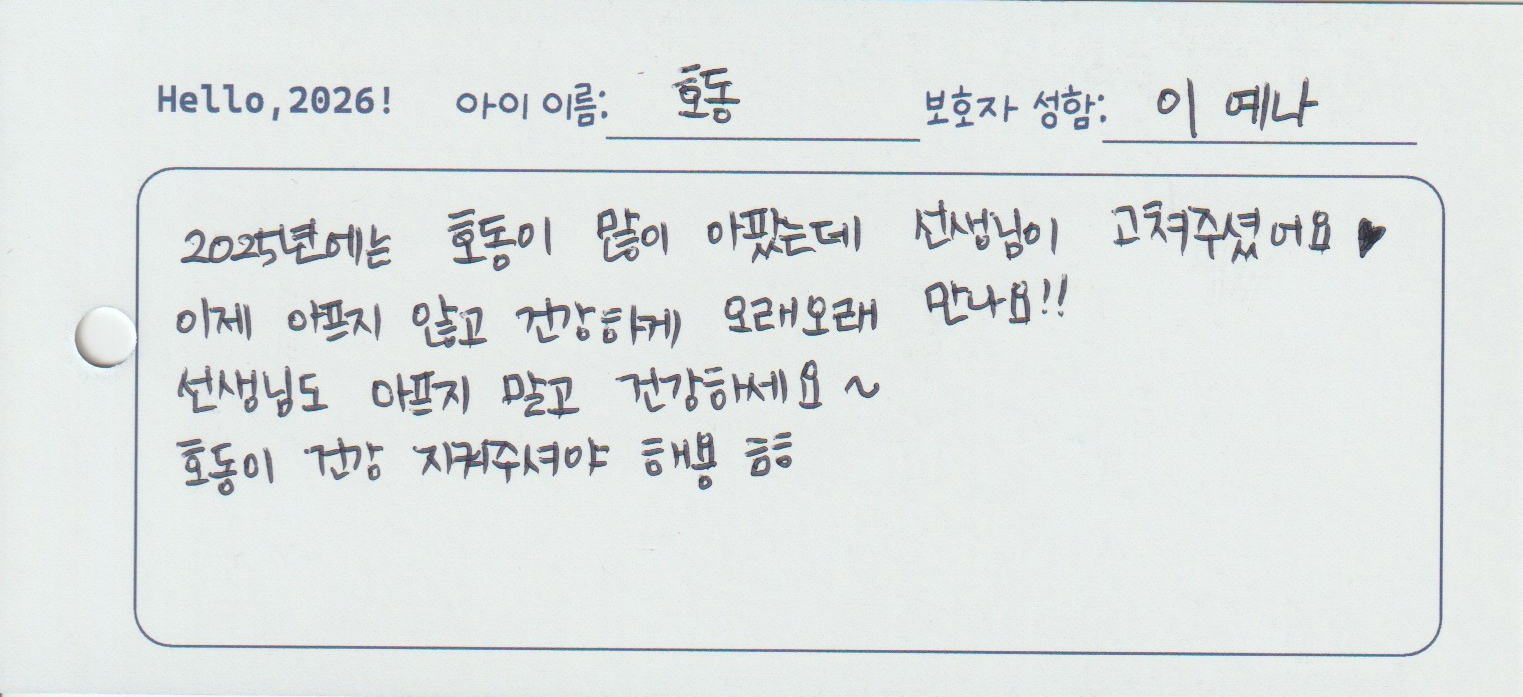 Hello,2026! 아이 이름: 호동 보호자 성함: 이 예나
2025년에는 호동이 많이 아팠는데 선생님이 고쳐주셨어요 ♥
이제 아프지 않고 건강하게 오래오래 만나요!!
선생님도 아프지 말고 건강하세요~
호동이 건강 지켜주셔야 해용 흐흐